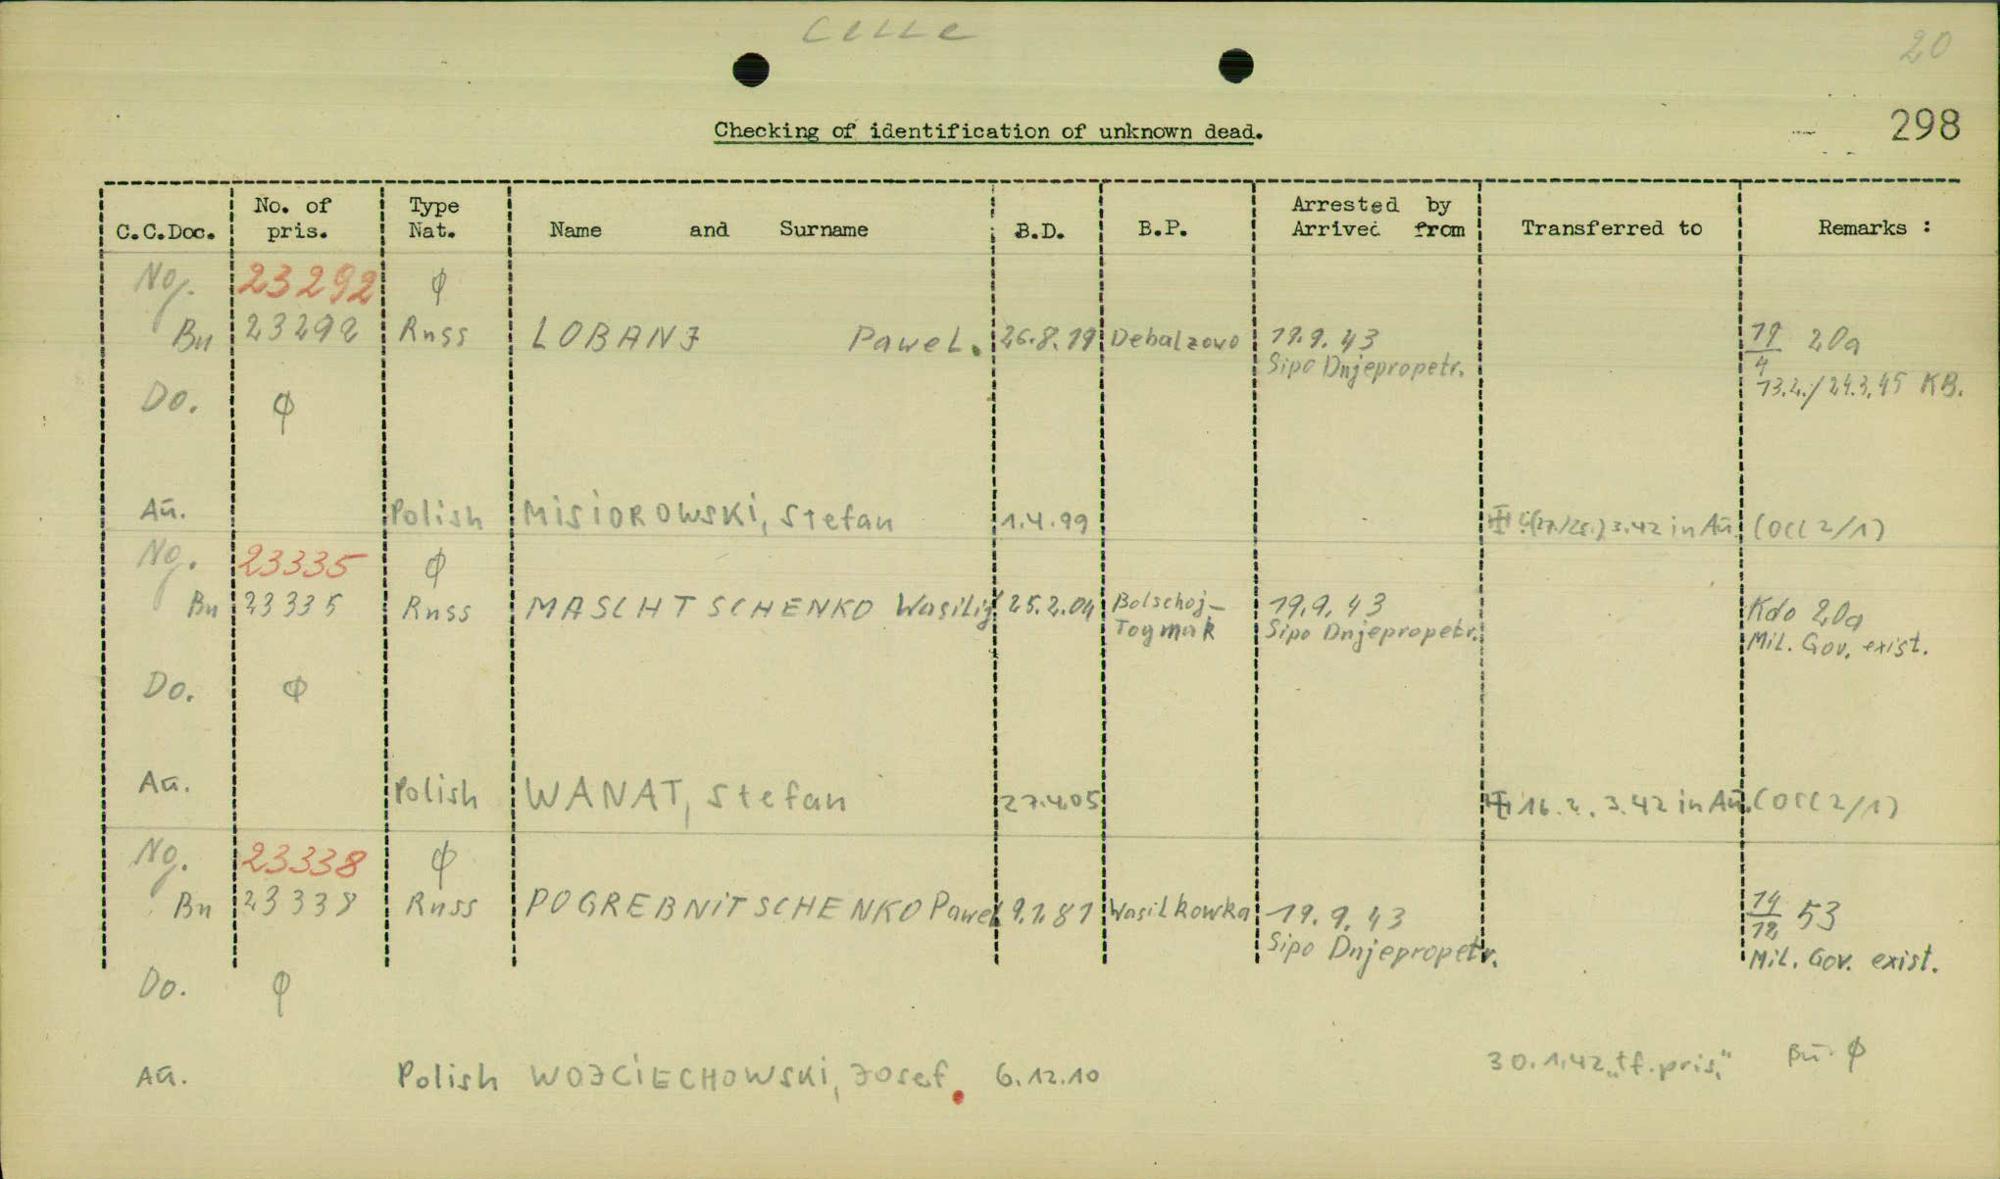 Celle
20
298
Checking of identification of unknown dead.
C.C.Doc. No. of pris. Type Nat. Name and Surname B.D. B.P. Arrested by Arrived from Transferred to Remarks :
Ng. 23292 φ
Bu 23292 Russ LOBANJ Pawel. 26.8.19 Debalzowo 19.9.43 19/4 20a
Sipo Dnjepropetr. 13.2./24.3.45 KB.
Do. φ
Au. Polish MISIOROWSKI, Stefan 1.4.99 3.42 in Au. (OCC 2/1)
Ng. 23335 φ
Bu 23335 Russ MASCHTSCHENKO Wasilij 25.2.04 Bolschoj- 19.9.43 Kdo 20a
Togmak Sipo Dnjepropetr. Mil. Gov. exist.
Do. φ
Au. Polish WANAT, Stefan 27.4.05 3.42 in Au. (OCC 2/1)
Ng. 23338 φ
Bu 23338 Russ POGREBNITSCHENKO Pawel 9.1.81 Wasilkowka 19.9.43 14/12 53
Sipo Dnjepropetr. Mil. Gov. exist.
Do. φ
Au. Polish WOJCIECHOWSKI, Josef. 6.12.10 30.1.42 „tf. pris." Bu φ